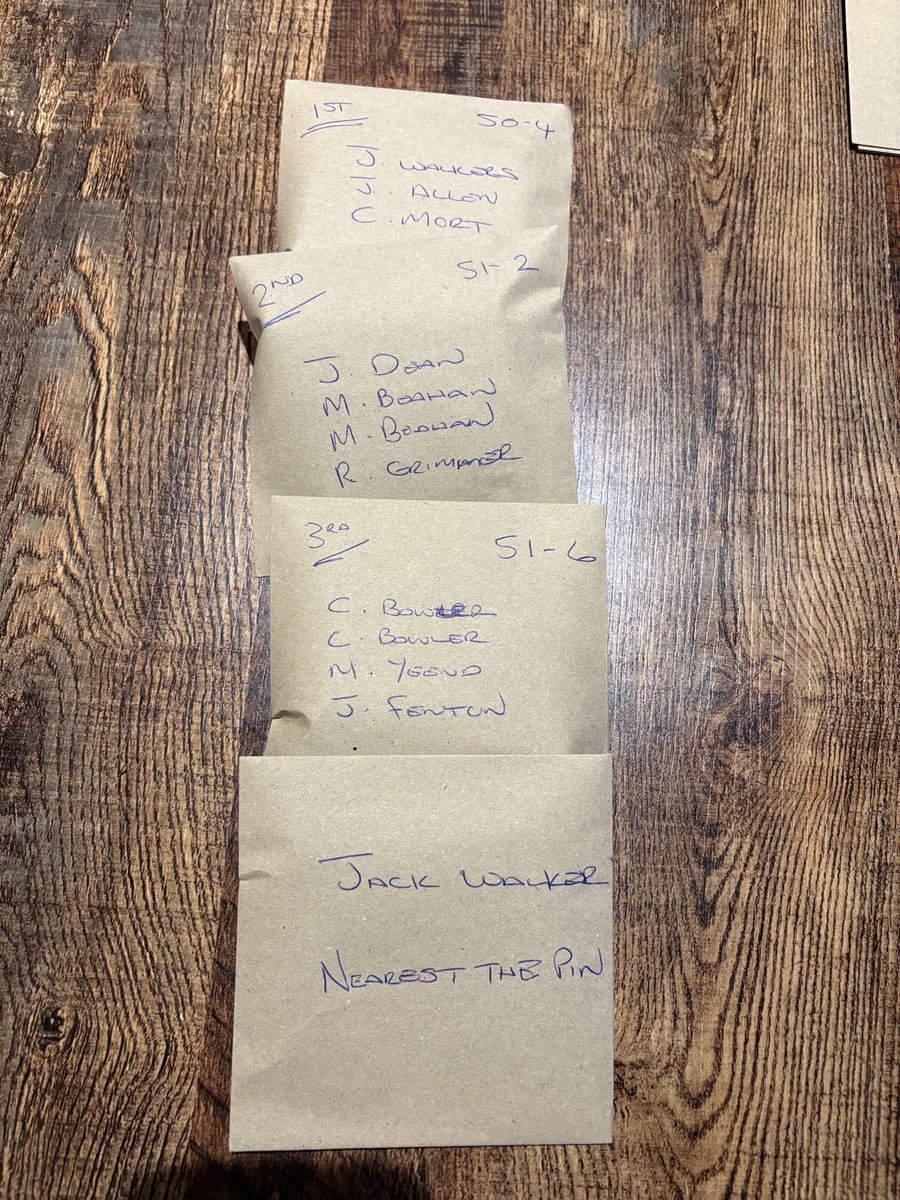 1ST 50-4
J. WALKERS
J. ALLEN
C. MORT
2ND 51-2
J. DEAN
M. BEAHAN
M. BEAHAN
R.
3RD 51-6
C. BOWLER
C. BOWLER
M. YEEND
J. FENTON
JACK WALKER
NEAREST THE PIN